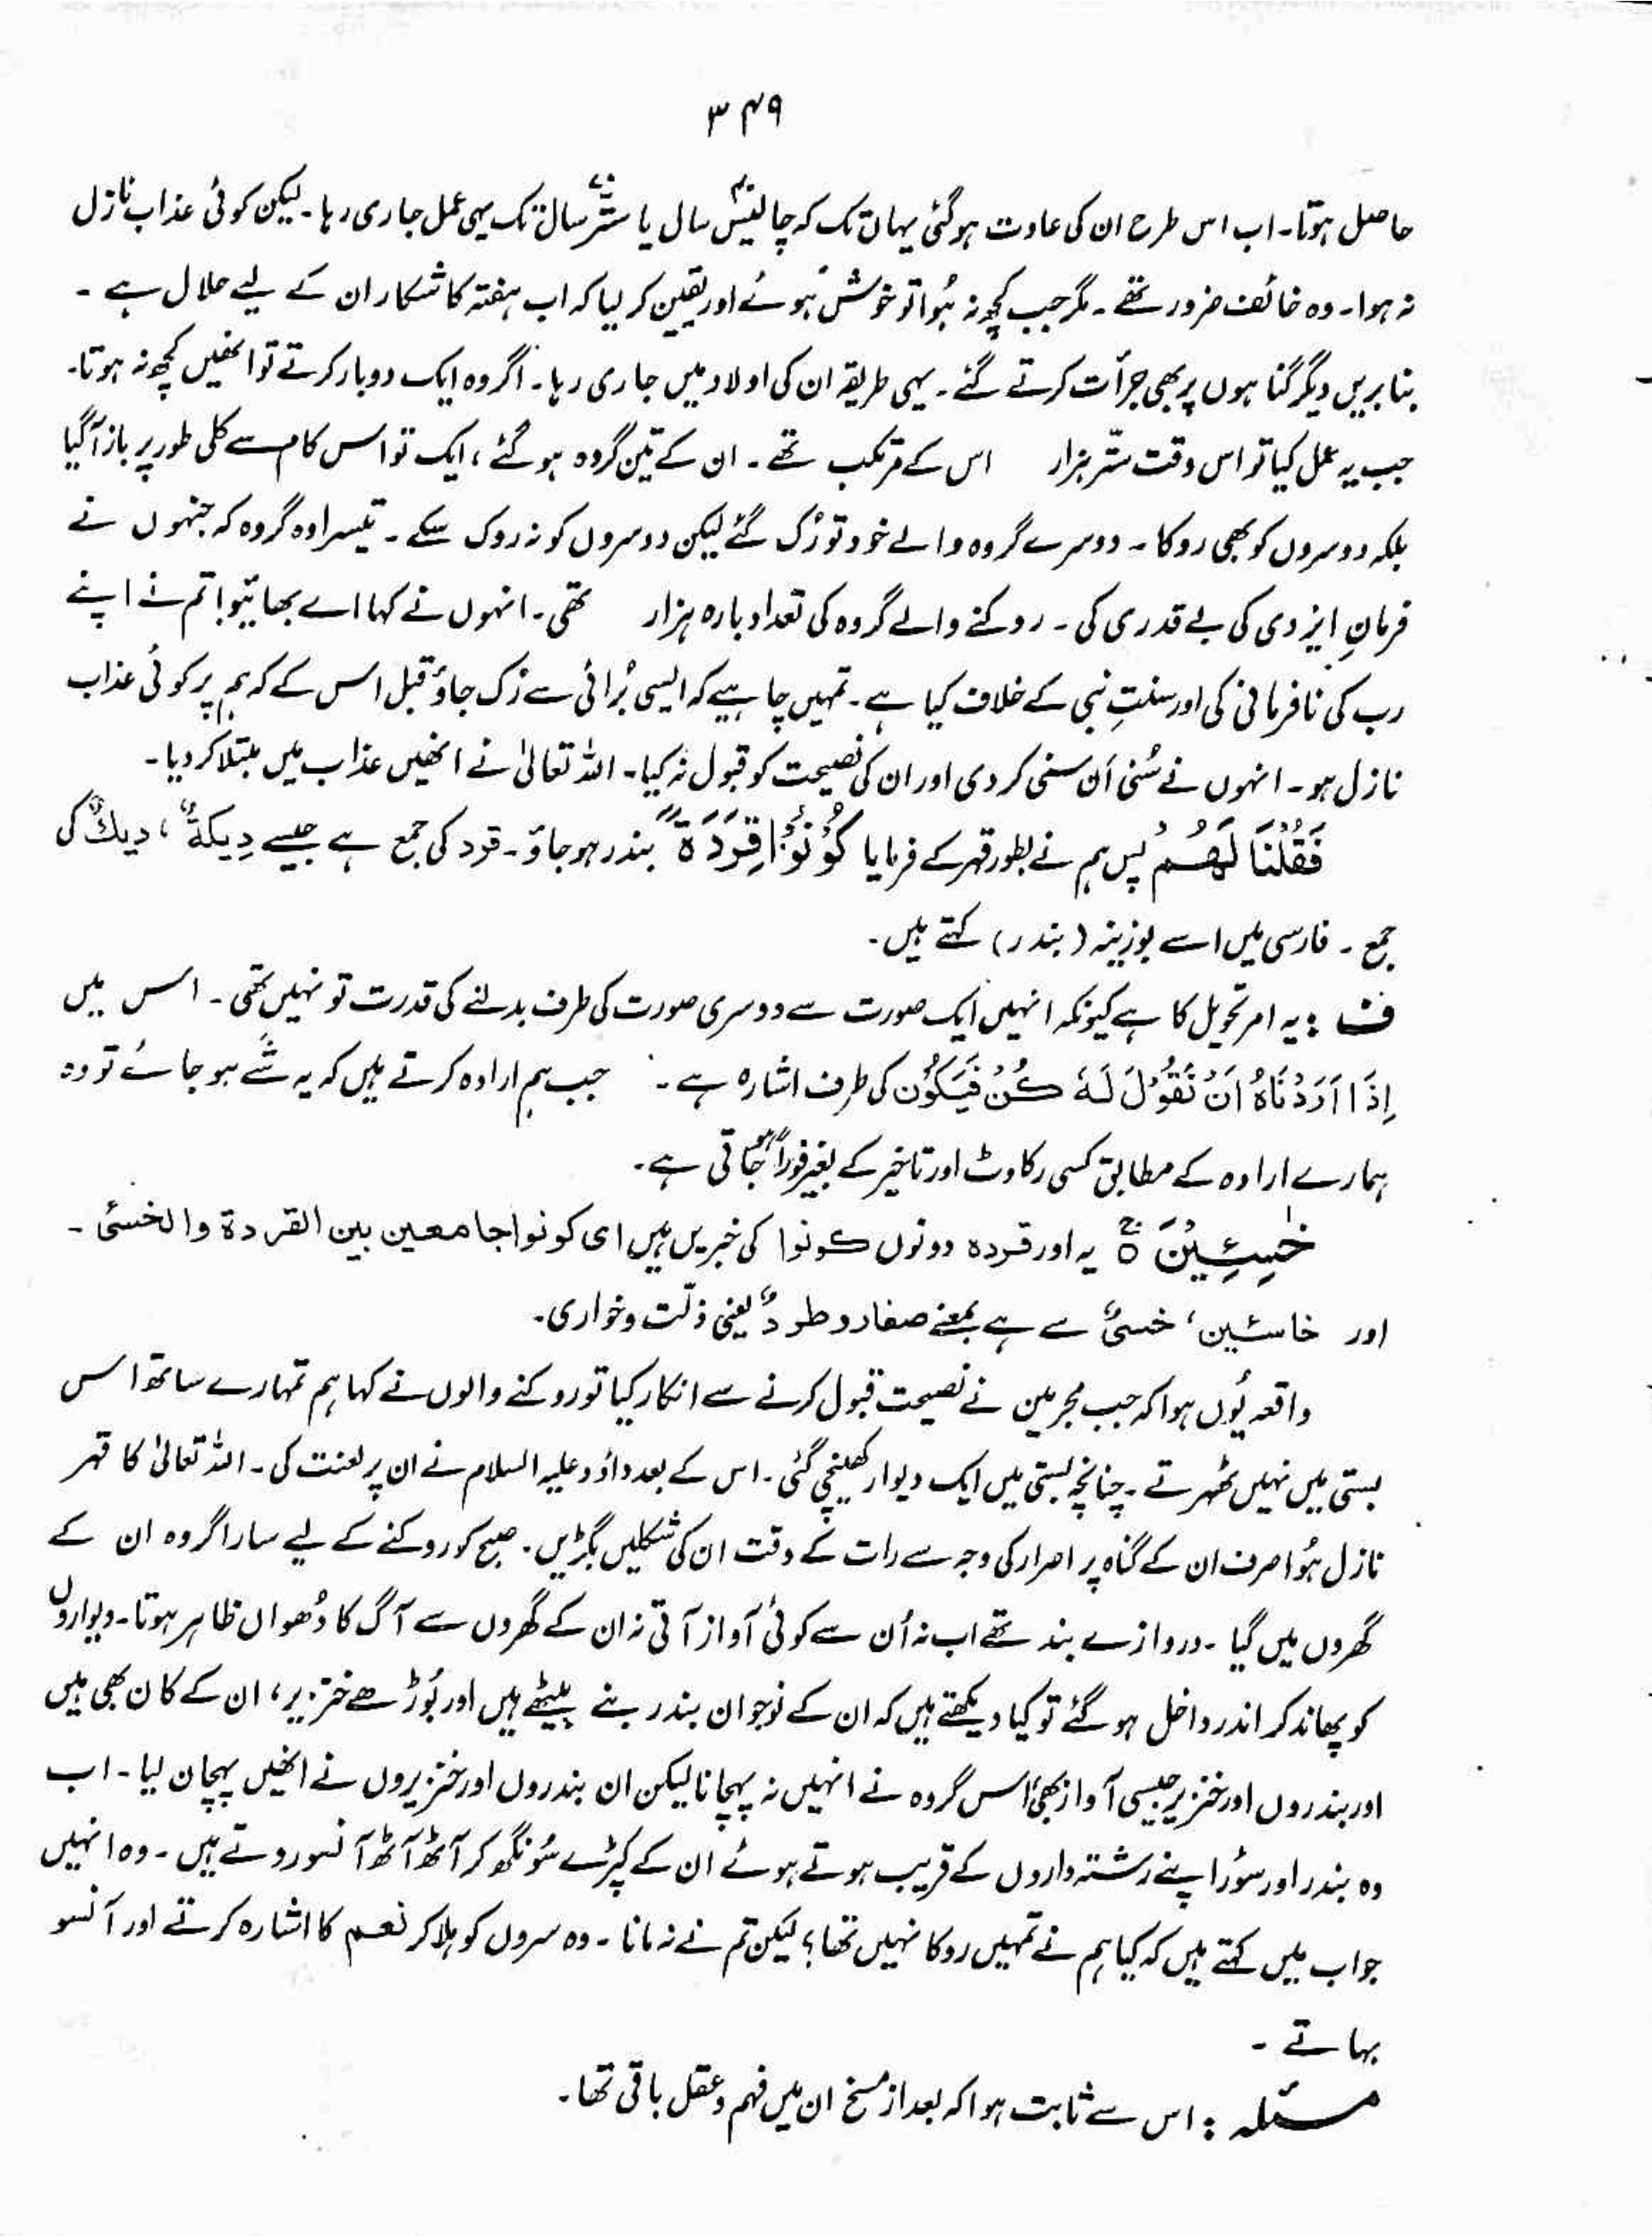 ۳۴۹
حاصل ہوتا۔ اب اس طرح ان کی عادت ہوگئی یہاں تک کہ چالیس سال یا ستّر سال تک یہی عمل جاری رہا۔ لیکن کوئی عذاب نازل
نہ ہوا۔ وہ خائف ضرور تھے۔ مگر جب کچھ نہ ہُوا تو خوش ہُوئے اور یقین کر لیا کہ اب ہفتہ کا شکار ان کے لیے حلال ہے۔
بنا بریں دیگر گناہوں پر بھی جرأت کرتے گئے۔ یہی طریقہ ان کی اولاد میں جاری رہا۔ اگر وہ ایک دو بار کرتے تو انھیں کچھ نہ ہوتا۔
جب یہ عمل کیا تو اس وقت ستّر ہزار اس کے مرتکب تھے۔ ان کے تین گروہ ہو گئے، ایک تو اس کام سے کلی طور پر باز آگیا
بلکہ دوسروں کو بھی روکا۔ دوسرے گروہ والے خود تو رُک گئے لیکن دوسروں کو نہ روک سکے۔ تیسرا وہ گروہ کہ جنہوں نے
فرمانِ ایزدی کی بے قدری کی۔ روکنے والے گروہ کی تعداد بارہ ہزار تھی۔ انہوں نے کہا اے بھائیو! تم نے اپنے
رب کی نافرمانی کی اور سنتِ نبی کے خلاف کیا ہے۔ تمہیں چاہیے کہ ایسی بُرائی سے رُک جاؤ قبل اس کے کہ ہم پر کوئی عذاب
نازل ہو۔ انہوں نے سُنی اَن سنی کر دی اور ان کی نصیحت کو قبول نہ کیا۔ اللہ تعالیٰ نے انھیں عذاب میں مبتلا کر دیا۔
فَقُلْنَا لَهُمْ پس ہم نے بطور قہر کے فرمایا كُوْنُوْا قِرَدَةً بندر ہو جاؤ۔ قرد کی جمع ہے جیسے دِیکۃٌ، دیكٌ کی
جمع۔ فارسی میں اسے بوزینہ (بندر) کہتے ہیں۔
ف : یہ امر تحویل کا ہے کیونکہ انہیں ایک صورت سے دوسری صورت کی طرف بدلنے کی قدرت تو نہیں تھی۔ اس میں
اِذَا اَرَدْنَاهُ اَنْ نَقُوْلَ لَهٗ كُنْ فَيَكُوْن کی طرف اشارہ ہے۔ جب ہم ارادہ کرتے ہیں کہ یہ شے ہو جائے تو وہ
ہمارے ارادہ کے مطابق کسی رکاوٹ اور تاخیر کے بغیر فوراً ہو جاتی ہے۔
خٰسِئِيْنَ ۝ ج یہ اور قردہ دونوں کونوا کی خبریں ہیں ای کونوا جامعین بین القردۃ والخسئ۔
اور خاسئین، خسئٌ سے ہے بمعنے صغار و طردٌ یعنی ذلّت و خواری۔
واقعہ یُوں ہوا کہ جب مجرمین نے نصیحت قبول کرنے سے انکار کیا تو روکنے والوں نے کہا ہم تمہارے ساتھ اس
بستی میں نہیں ٹھہرتے۔ چنانچہ بستی میں ایک دیوار کھینچی گئی۔ اس کے بعد داؤد علیہ السلام نے ان پر لعنت کی۔ اللہ تعالیٰ کا قہر
نازل ہُوا صرف ان کے گناہ پر اصرار کی وجہ سے رات کے وقت ان کی شکلیں بگڑیں۔ صبح کو روکنے کے لیے سارا گروہ ان کے
گھروں میں گیا۔ دروازے بند تھے اب نہ اُن سے کوئی آواز آتی نہ ان کے گھروں سے آگ کا دُھواں ظاہر ہوتا۔ دیواروں
کو پھاند کر اندر داخل ہو گئے تو کیا دیکھتے ہیں کہ ان کے نوجوان بندر بنے بیٹھے ہیں اور بُوڑھے خنزیر، ان کے کان بھی ہیں
اور بندروں اور خنزیر جیسی آواز بھی، اس گروہ نے انہیں نہ پہچانا لیکن ان بندروں اور خنزیروں نے انھیں پہچان لیا۔ اب
وہ بندر اور سؤر اپنے رشتہ داروں کے قریب ہوتے ہوئے ان کے کپڑے سُونگھ کر آٹھ آٹھ آنسو روتے ہیں۔ وہ انہیں
جواب میں کہتے ہیں کہ کیا ہم نے تمہیں روکا نہیں تھا؟ لیکن تم نے نہ مانا۔ وہ سروں کو ہلا کر نعم کا اشارہ کرتے اور آنسو
بہاتے۔
مسئلہ : اس سے ثابت ہوا کہ بعد از مسخ ان میں فہم و عقل باقی تھا۔